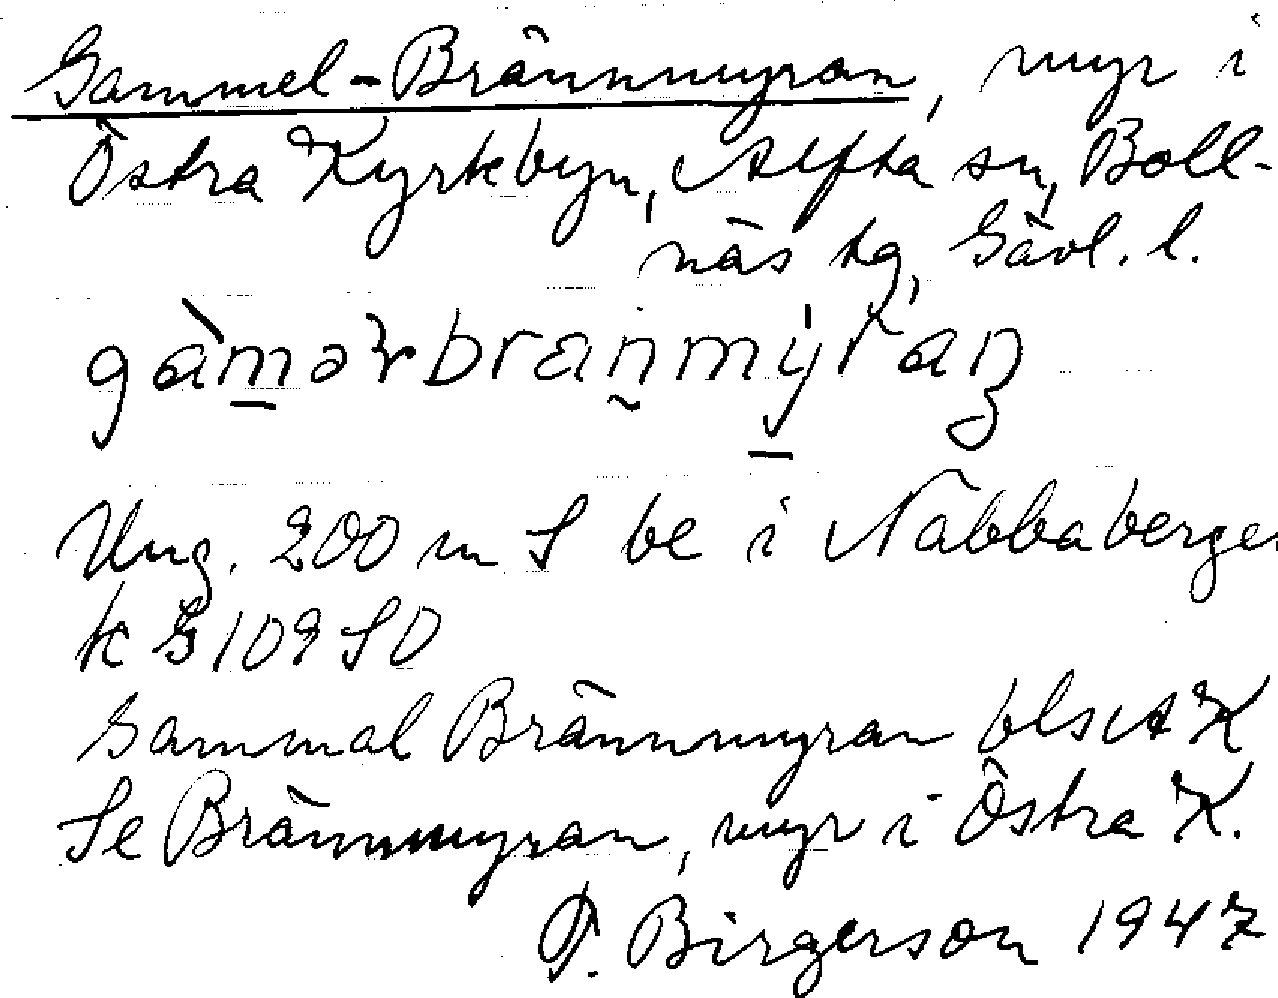 Gammel-Brännmyran, myr i
Östra Kyrkbyn, Alfta sn, Boll-
näs tg, Gävl. l.
Ung. 200 m S be i Nabbaberge
k G 109 SO
Gammal Brännmyran blsit K
Se Brännmyran, myr i Östra K.
P. Birgerson 1947